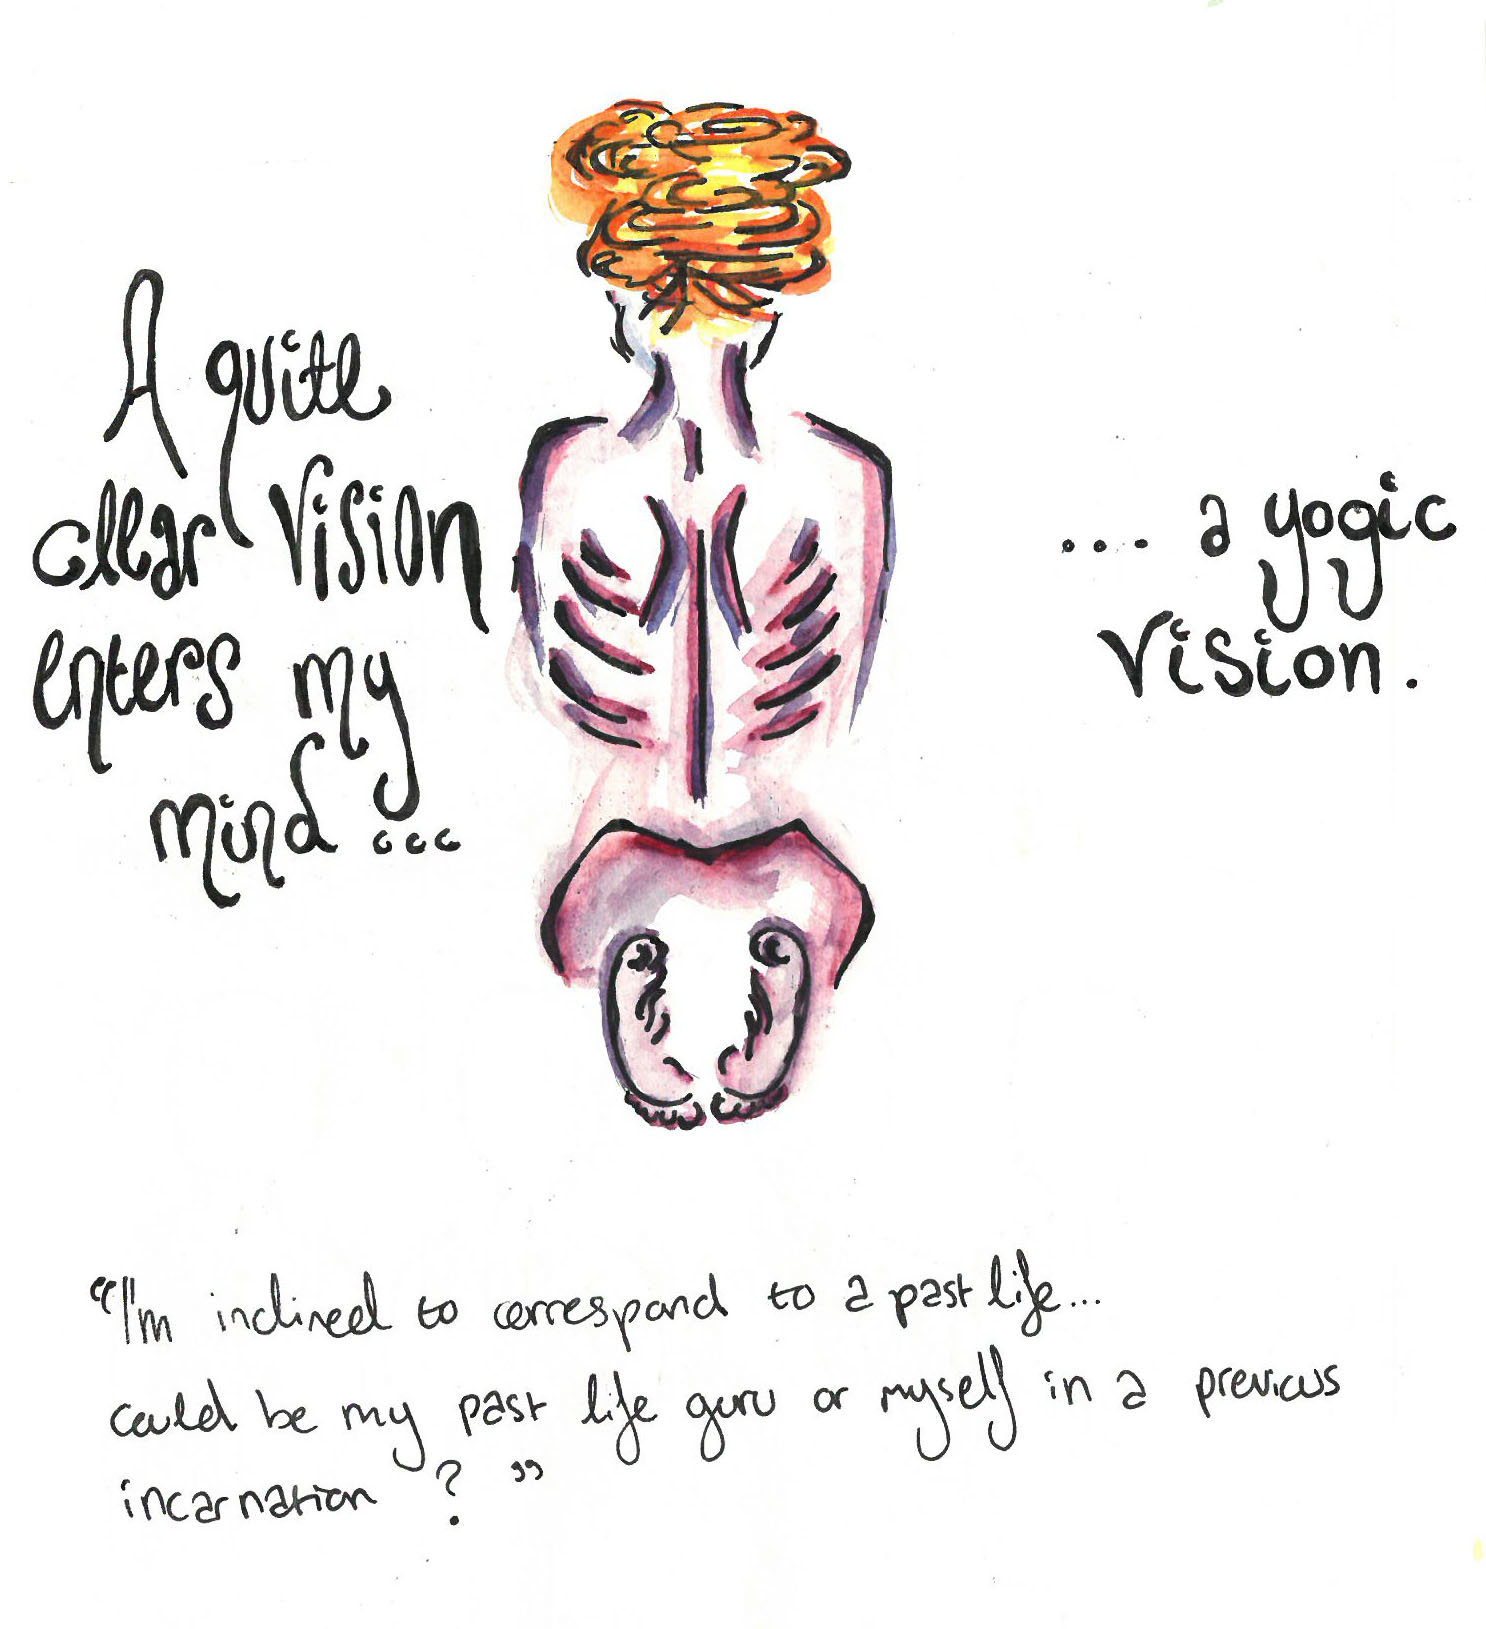 A quite
clear vision
enters my
mind ...
.... a yogic
vision.
"I'm inclined to correspond to a past life...
could be my past life guru or myself in a previous
incarnation ? "